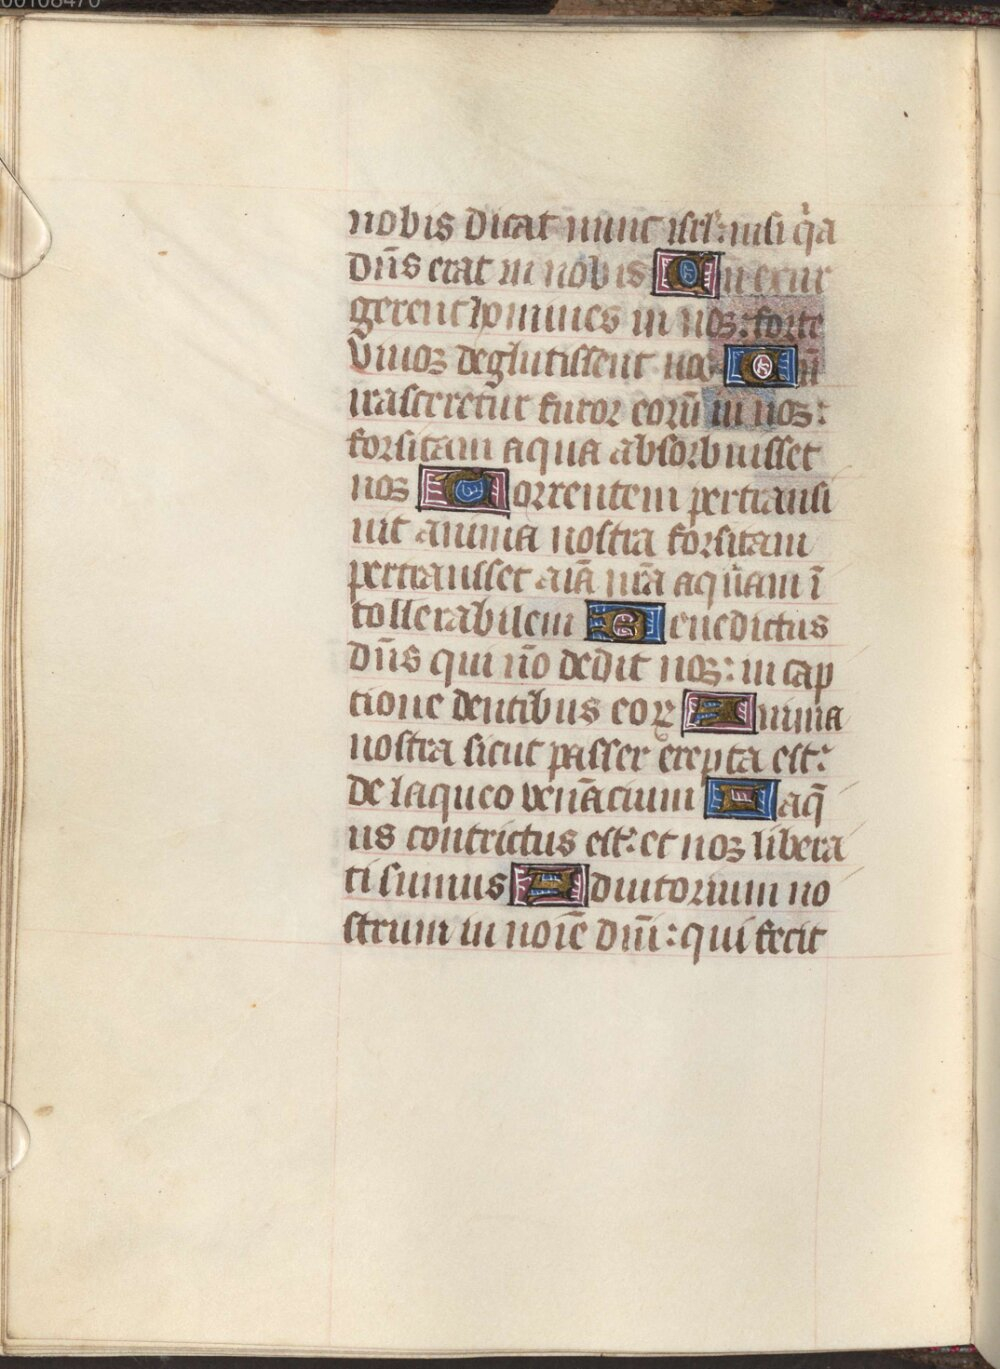 nobis dicat nunc isrl': nisi q̇a
dn̄s erat in nobis Cū exur
gerent homines in nos: forte
vivos deglutissent nos Cū
irasceret̄ur furor eorū in nos:
forsitam aqua absorbuisset
nos Torrentem pertransi
vit anima nostra forsitam
pertransset aīā nr̄a aquam ī
tollerabilem Benedictus
dn̄s qui nō dedit nos: in cap
tione dentibus eoꝝ Anima
nostra sicut passer erepta est:
de laqueo venācium Laq̄
us contrictus est: et nos libera
ti sumus Adiutorium no
strum in noīe dn̄i: qui fecit